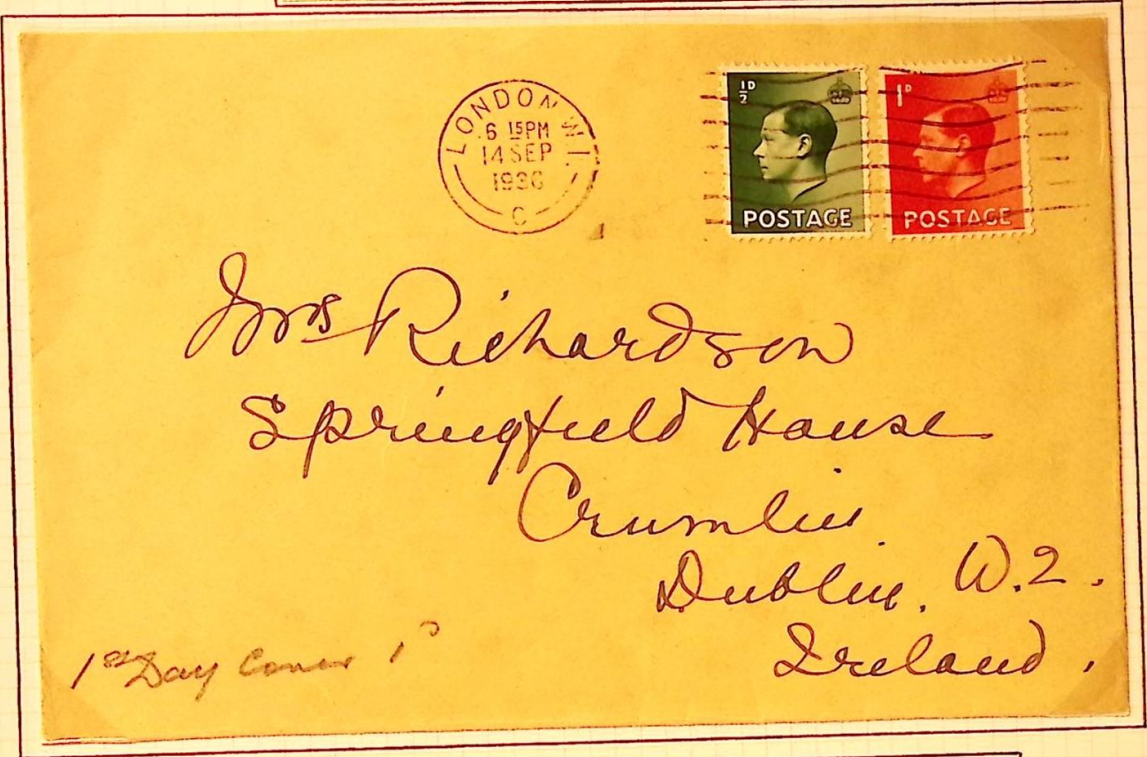 LONDON.W.1.
6 15PM
14 SEP
1936
C
½D
POSTAGE
1D
POSTAGE
Mrs Richardson
Springfield House
Crumlin
Dublin. W.2.
Ireland.
1st Day Cover 1D